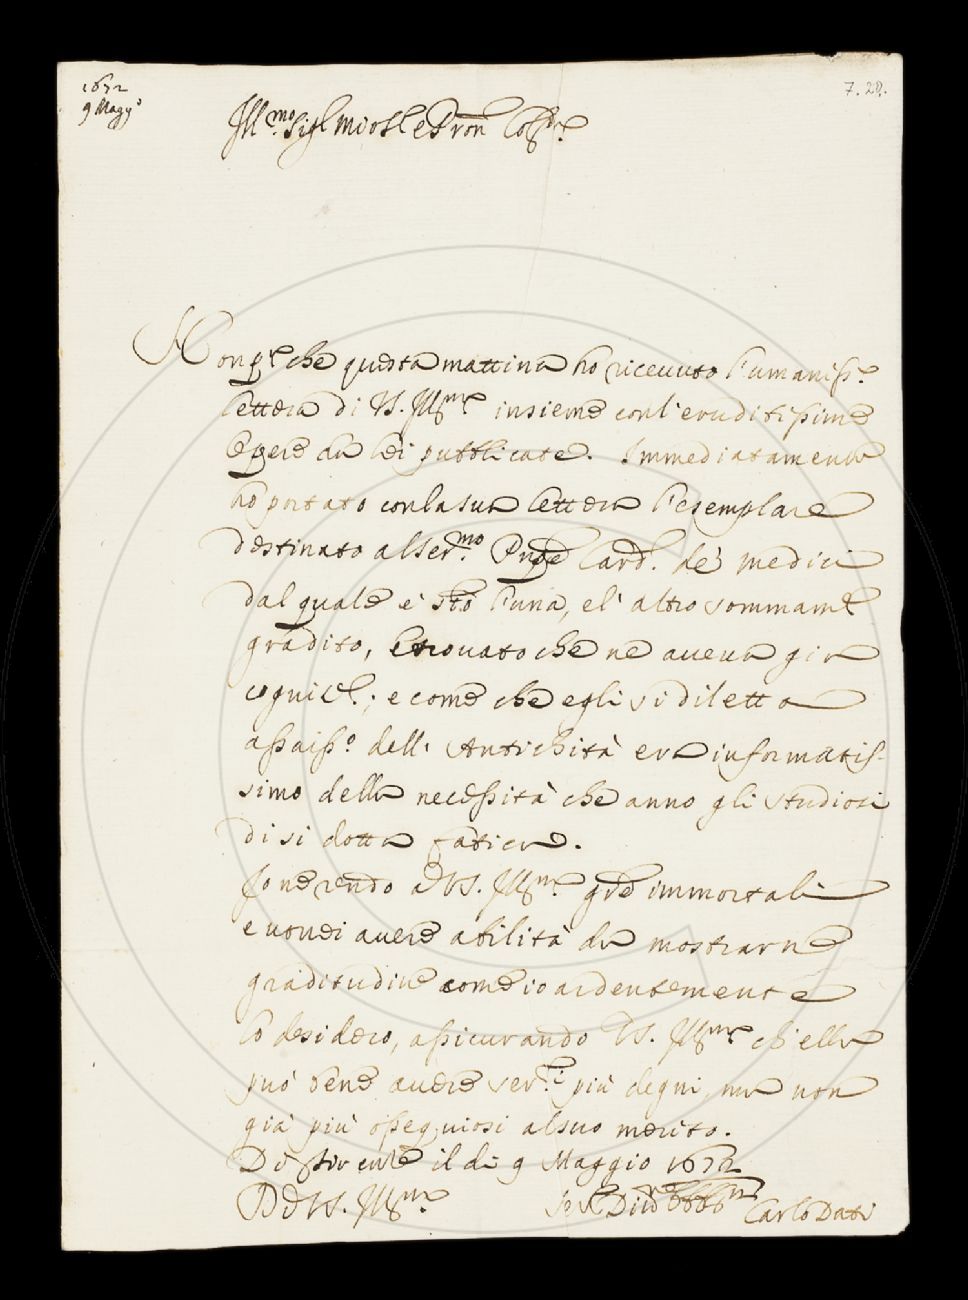 1672
9 Magg.º
7. 28.
Ill.mo Sig.r mio Sig.re e Pron Col.mo
Non p.ª che questa mattina ho riceuuto l'umaniss.ª
lettera di VS. Ill.ma insieme con l'eruditissime
Opere da lei pubblicate. Immediatamente
ho portato con la sua lettera l'esemplare
destinato al Ser.mo Pnpe Card. de' Medici
dal quale è sto l'una, e l'altro sommamte
gradito, e trouato che ne aueua gia
cognie; e come che egli si diletta
assaiss.º dell' Antichità era informatis-
simo della necessità che anno gli studiosi
di si dotta fatica.
Io ne rendo a VS. Ill.ma gre immortali
e uorrei auere abilità da mostrarne
gratitudine come io ardentemente
lo desidero, assicurando VS. Ill.ma ch'ella
può bene auere ser.ri più degni, ma non
già più ossequiosi al suo merito.
Di Firenze il di 9 Maggio 1672
D VS. Ill.ma
Ser. Diuo Obbl.mo Carlo Dati